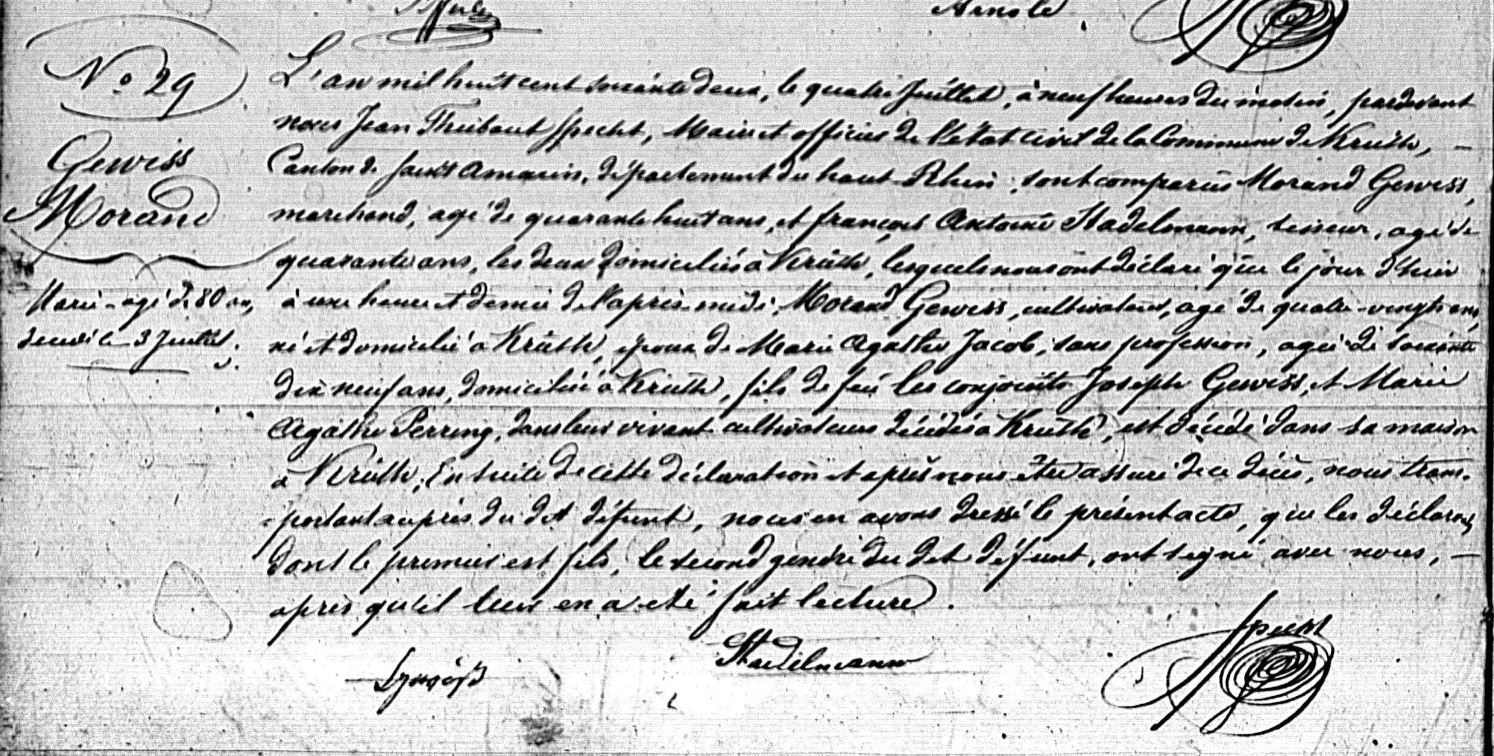 Arnold
N° 29
Gewiss
Morand
Marié - agé de 80 ans,
décédé le 3 Juillet.
L'an mil huit cent soixante deux, le quatre Juillet, à neuf heures du matin, pardevant
nous Jean Thiébaut Specht, Maire et officier de l'état civil de la Commune de Krüth, —
Canton de Saint Amarin, département du haut-Rhin, sont comparus Morand Gewiss,
marchand, agé de quarante huit ans, et françois Antoine Stadelmann, tisseur, agé de
quarante ans, les deux domiciliés à Krüth, lesquels nous ont déclaré que le jour d'hier
à une heure et demie de l'après-midi, Morand Gewiss, cultivateur, agé de quatre-vingts ans,
né et domicilié à Krüth, époux de Marie Agathe Jacob, sans profession, agée de soixante
dix neuf ans, domiciliée à Krüth, fils de feu les conjoints Joseph Gewiss, et Marie
Agathe Perring, dans leur vivant cultivateurs décédés à Krüth, est décédé dans sa maison
à Krüth; Ensuite de cette déclaration et après nous être assuré de ce décès, nous trans-
-portant auprès du dit défunt, nous en avons dressé le présent acte, que les déclarans
dont le premier est fils, le second gendre du dit défunt, ont signé avec nous, —
après qu'il leur en a été fait lecture.
Stadelmann
Specht